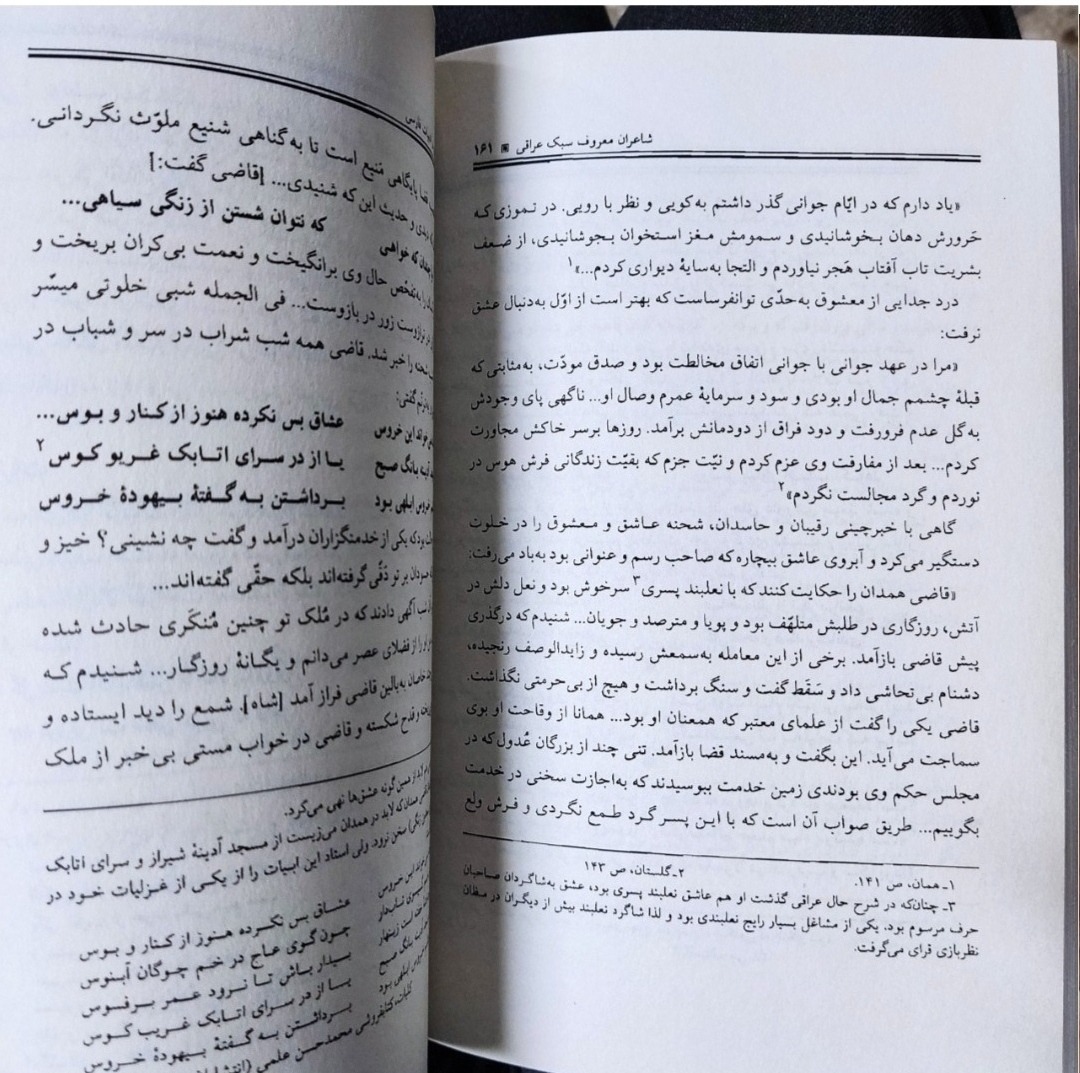 شاعران معروف سبک عراقی ▣ ۱۶۱
«یاد دارم که در ایّام جوانی گذر داشتم به‌کویی و نظر با رویی. در تموزی که
حَرورش دهان بخوشانیدی و سمومش مغز استخوان بجوشانیدی، از ضعف
بشریت تاب آفتاب هَجر نیاوردم و التجا به‌سایهٔ دیواری کردم...»۱
درد جدایی از معشوق به‌حدّی توانفرساست که بهتر است از اوّل به‌دنبال عشق
نرفت:
«مرا در عهد جوانی با جوانی اتفاق مخالطت بود و صدق مودّت، به‌مثابتی که
قبلهٔ چشمم جمال او بودی و سود و سرمایهٔ عمرم وصال او... ناگهی پای وجودش
به‌گل عدم فرورفت و دود فراق از دودمانش برآمد. روزها برسر خاکش مجاورت
کردم... بعد از مفارقت وی عزم کردم و نیّت جزم که بقیّت زندگانی فرش هوس در
نوردم و گرد مجالست نگردم»۲
گاهی با خبرچینی رقیبان و حاسدان، شحنه عاشق و معشوق را در خلوت
دستگیر می‌کرد و آبروی عاشق بیچاره که صاحب رسم و عنوانی بود به‌باد می‌رفت:
«قاضی همدان را حکایت کنند که با نعلبند پسری۳ سرخوش بود و نعل دلش در
آتش، روزگاری در طلبش متلهّف بود و پویا و مترصد و جویان... شنیدم که درگذری
پیش قاضی بازآمد. برخی از این معامله به‌سمعش رسیده و زایدالوصف رنجیده،
دشنام بی‌تحاشی داد و سَقَط گفت و سنگ برداشت و هیچ از بی‌حرمتی نگذاشت.
قاضی یکی را گفت از علمای معتبر که همعنان او بود... همانا از وقاحت او بوی
سماجت می‌آید. این بگفت و به‌مسند قضا بازآمد. تنی چند از بزرگان عُدول که در
مجلس حکم وی بودندی زمین خدمت ببوسیدند که به‌اجازت سخنی در خدمت
بگوییم... طریق صواب آن است که با این پسر گرد طمع نگردی و فرش ولع
۱ـ همان، ص ۱۴۱. ۲ـ گلستان، ص ۱۴۳
۳ـ چنان‌که در شرح حال عراقی گذشت او هم عاشق نعلبند پسری بود، عشق به‌شاگردان صاحبان
حرف مرسوم بود. یکی از مشاغل بسیار رایج نعلبندی بود و لذا شاگرد نعلبند بیش از دیگران در مظان
نظربازی قرای می‌گرفت.
فارسی
پایگاهی منیع است تا به‌گناهی شنیع ملوّث نگردانی.
و حدیث این که شنیدی... [قاضی گفت:]
که خواهی که نتوان شستن از زنگی سیاهی...
حال وی برانگیخت و نعمت بی‌کران بریخت و
زور در بازوست... فی الجمله شبی خلوتی میسّر
را خبر شد. قاضی همه شب شراب در سر و شباب در
گفتی:
این خروس عشاق بس نکرده هنوز از کنار و بوس...
بانگ صبح یا از در سرای اتابک غریو کوس۲
ابلهی بود برداشتن به گفتهٔ بیهودهٔ خروس
بود که یکی از خدمتگزاران درآمد و گفت چه نشینی؟ خیز و
بر تو دَقّی گرفته‌اند بلکه حقّی گفته‌اند...
آگهی دادند که در مُلک تو چنین مُنکَری حادث شده
را از فضلای عصر می‌دانم و یگانهٔ روزگار... شنیدم که
خاصان به‌بالین قاضی فراز آمد [شاه]. شمع را دید ایستاده و
و قدح شکسته و قاضی در خواب مستی بی‌خبر از ملک
گونه عشق‌ها نهی می‌کرد.
همدان که لابد در همدان می‌زیست از مسجد آدینهٔ شیراز و سرای اتابک
سخن نرود. ولی استاد این ابیات را از یکی از غزلیات خود در
این خروس عشاق بس نکرده هنوز از کنار و بوس
تابدار چون گوی عاج در خم چوگان آبنوس
زینهار بیدار باش تا نرود عمر برفسوس
بانگ صبح یا از در سرای اتابک غریب کوس
ابلهی بود برداشتن به گفتهٔ بیهودهٔ خروس
کلیات، کتابفروشی محمدحسن علمی